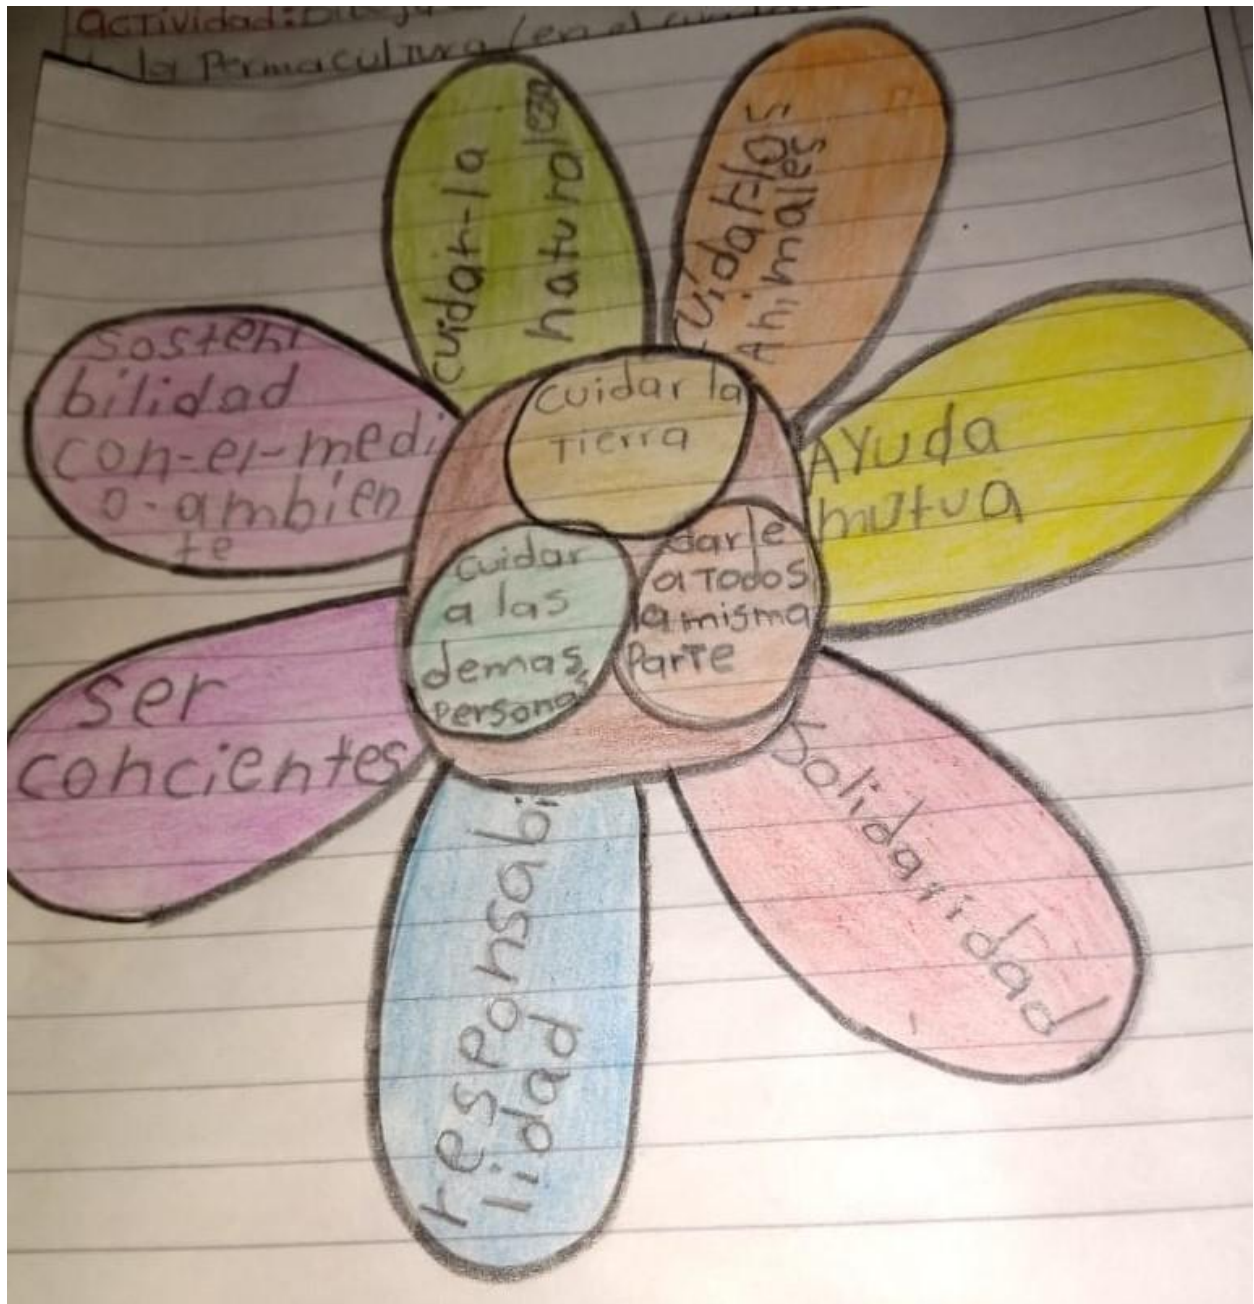 actividad:
la Permacultura (en el
cuidar-la
naturaleza
cuidar-los
Animales
AYuda
mutua
Sosteni
bilidad
con-el-medi
o-ambien
te
cuidar la
Tierra
cuidar
a las
demas
Personas
darle
a Todos
la misma
ParTe
ser
concientes
responsabi
lidad
Solidaridad